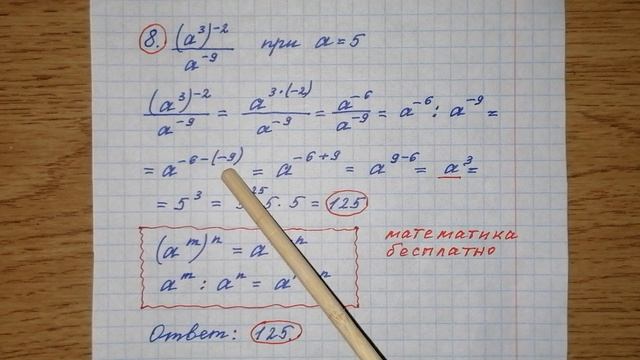 8. (a³)⁻² / a⁻⁹ при a = 5
(a³)⁻² / a⁻⁹ = a³·⁽⁻²⁾ / a⁻⁹ = a⁻⁶ / a⁻⁹ = a⁻⁶ : a⁻⁹ =
= a⁻⁶⁻⁽⁻⁹⁾ = a⁻⁶⁺⁹ = a⁹⁻⁶ = a³ =
= 5³ = 5·5·5 = 125
(aᵐ)ⁿ = a ⁿ
aᵐ : aⁿ = a ⁿ
математика
бесплатно
Ответ: 125.